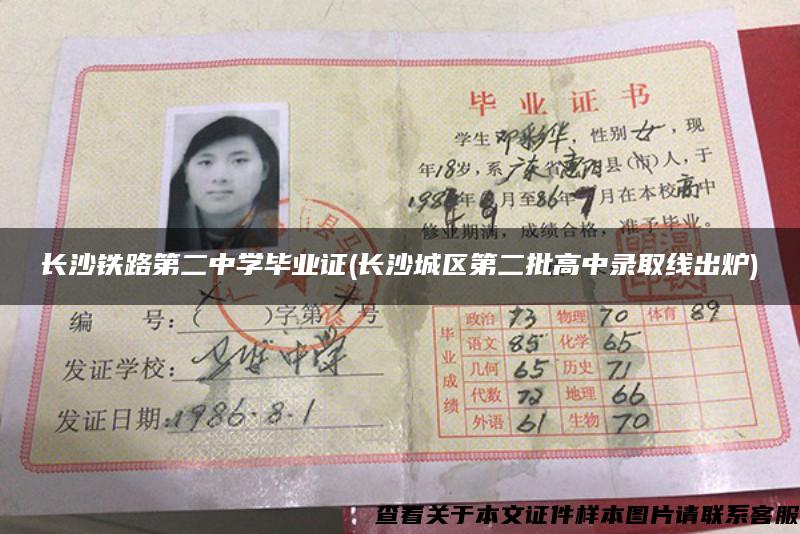 毕业证书
学生邓彩华，性别女，现
年18岁，系广东省惠阳县（市）人，于
198 年9月至86年7月在本校高中
修业期满，成绩合格，准予毕业。
长沙铁路第二中学毕业证(长沙城区第二批高中录取线出炉)
编 号：( )字第 号
发证学校： 中学
发证日期：1986.8.1
毕业成绩
政治 73 物理 70 体育 89
语文 85 化学 65
几何 65 历史 71
代数 72 地理 66
外语 61 生物 70
查看关于本文证件样本图片请联系客服